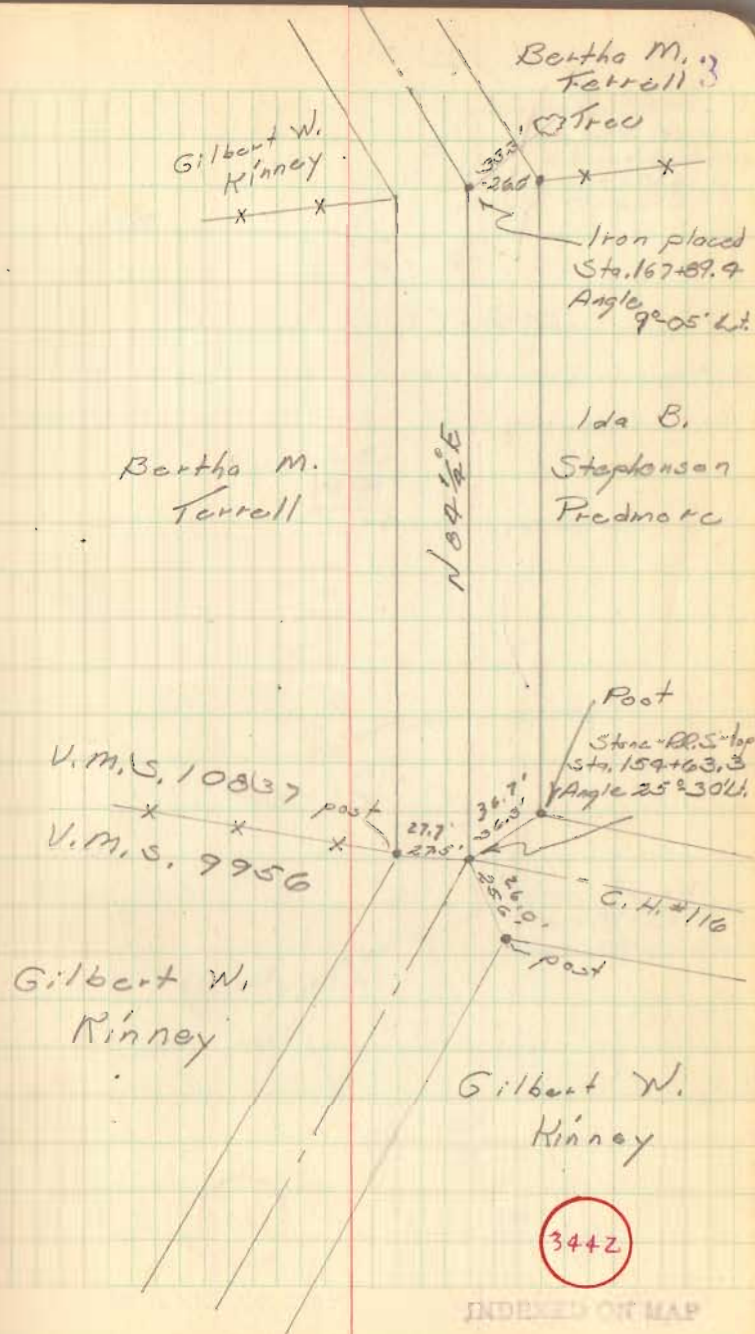 Bertha M.
Terrell
3
Tree
Gilbert W.
Kinney
33.3'
26.0'
Iron placed
Sta. 167+89.4
Angle
9°-05' Lt.
Ida B.
Stephenson
Predmore
Bertha M.
Terrell
N 84 1/4° E
Post
Stone-Rd.S-top
Sta. 154+63.3
Angle 25°30' Lt.
V.M.S. 10837
post
V.M.S. 9956
27.7'
27.5'
36.7'
36.3'
26.0'
25.6'
C.H. #116
post
Gilbert W.
Kinney
Gilbert W.
Kinney
3442
INDEXED ON MAP